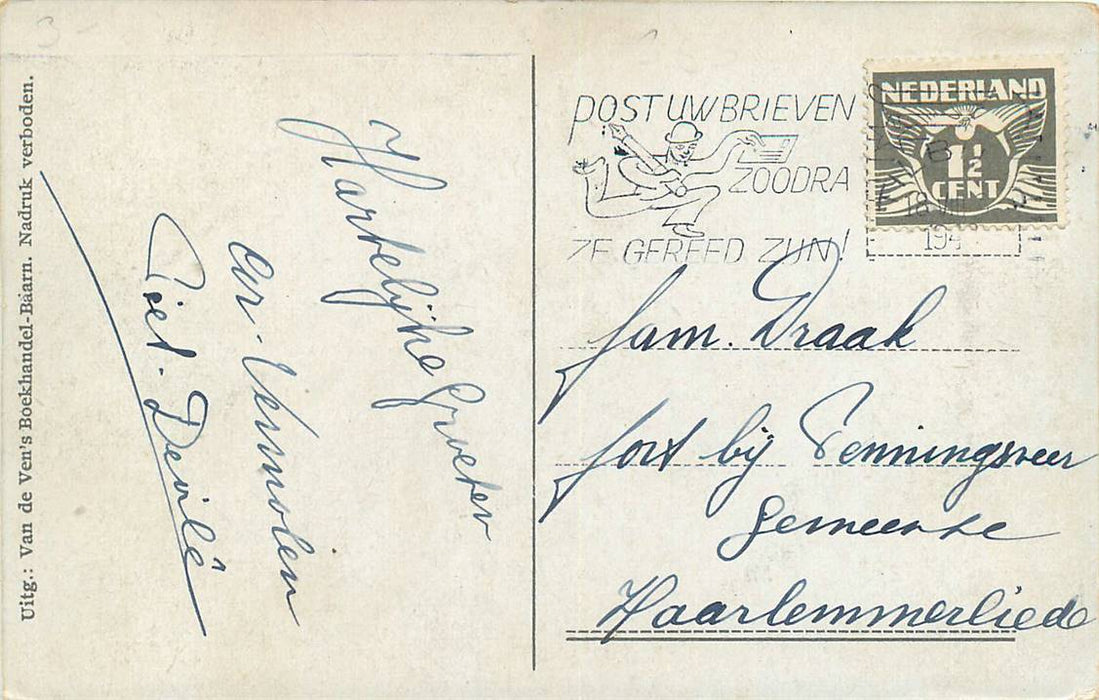 Uitg.: Van de Ven's Boekhandel-Baarn. Nadruk verboden.
Hartelijke Groeten
Cor. Vermolen
Piet. Devilé
POST UW BRIEVEN
ZOODRA
ZE GEREED ZIJN!
NEDERLAND
1½
CENT
18 VII
194
fam. Draak
fort bij Penningsveer
Gemeente
Haarlemmerliede